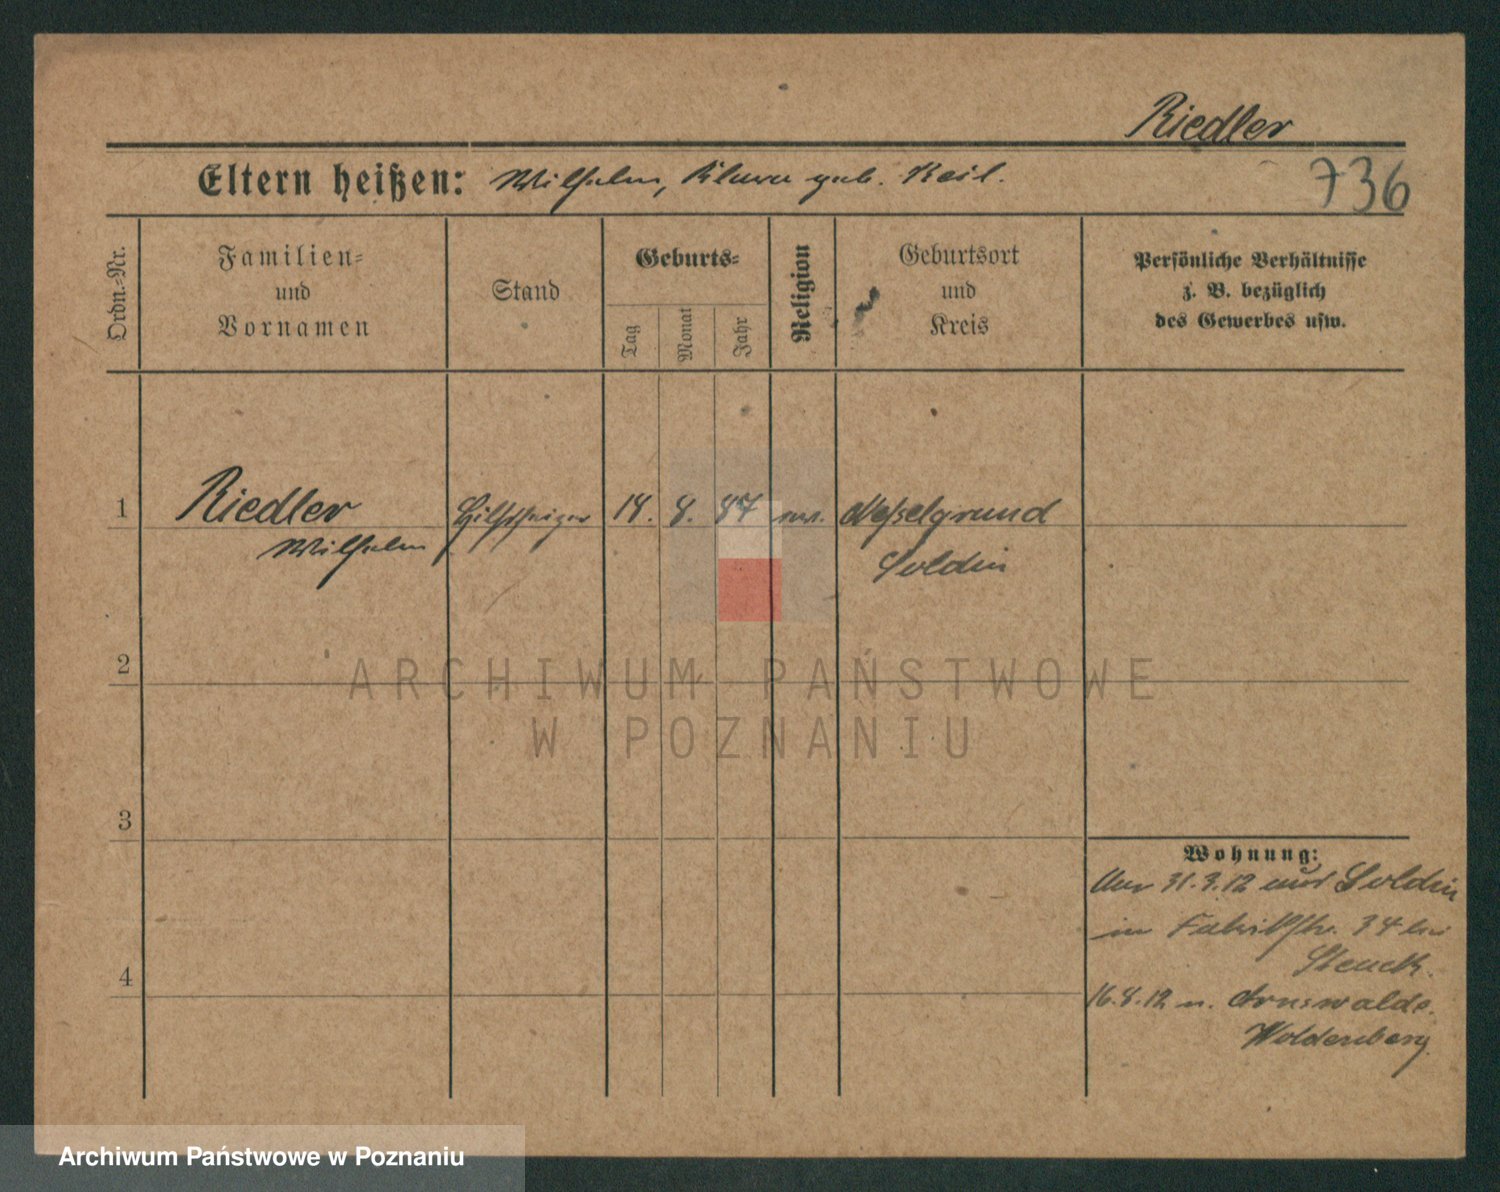 Riedler
Eltern heißen: Wilhelm, geb. Keil.
736
Ordn.-Nr.
Familien-
und
Vornamen
Stand
Geburts-
Tag
Monat
Jahr
Religion
Geburtsort
und
Kreis
Persönliche Verhältnisse
z. B. bezüglich
des Gewerbes usw.
1 Riedler 18. 8. 87 ev. Nesselgrund
Wilhelm Soldin
2
ARCHIWUM PAŃSTWOWE
W POZNANIU
3
Wohnung:
Am 31.3.12 aus Soldin
in Fabrikstr. 34 bei
16.8.12 n. Arnswalde.
Woldenberg.
4
Archiwum Państwowe w Poznaniu